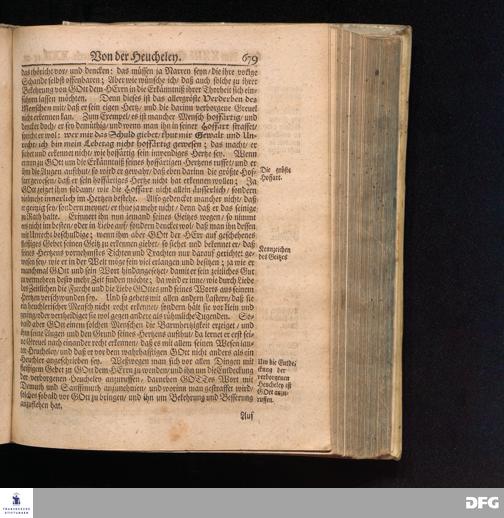 Von der Heucheley. 679
das thöricht vor/ und dencken: das müssen ja Narren seyn/ die ihre vorige
Schande selbst offenbaren; Aber wie wünsche ich/ daß auch solche zu ihrer
Bekehrung von GOtt dem HErrn in die Erkäntniß ihrer Thorheit sich ein-
führen lassen möchten. Denn dieses ist das allergröste Verderben des
Menschen mit/ daß er sein eigen Hertz/ und die darinn verborgene Greuel
nicht erkennen kan. Zum Exempel/ es ist mancher Mensch hoffärtig/ und
dencket doch/ er sey demüthig/ und wenn man ihn in seiner Hoffart straffet/
spricht er wol: wer mir das Schuld giebet/ thut mir Gewalt und Un-
recht/ ich bin mein Lebetag nicht hoffärtig gewesen; das macht/ er
siehet und erkennet nicht/ wie hoffärtig sein inwendiges Hertz sey. Wenn
nun GOtt um die Erkäntniß seines hoffärtigen Hertzens ruffet/ und er
ihm die Augen aufthut/ so wird er gewahr/ daß eben darinn die größte Hof-
fart gewesen/ daß er sein hoffärtiges Hertz nicht hat erkennen wollen; Ja
GOtt zeiget ihm sodann/ wie die Hoffart nicht allein äusserlich/ sondern
vielmehr innerlich im Hertzen bestehe. Also gedencket mancher nicht/ daß
er geitzig sey/ sondern meynet/ er thue ja mehr nicht/ denn daß er das seinige
zu Rath halte. Erinnert ihn nun jemand seines Geitzes wegen/ so nimmt
ers nicht im besten/ oder in Liebe auf/ sondern dencket wol/ daß man ihn dessen
mit Unrecht beschuldige; wenn ihm aber GOtt der HErr auf geschehenes
fleißiges Gebet seinen Geitz zu erkennen giebet/ so siehet und bekennet er/ daß
seines Hertzens vornehmstes Tichten und Trachten nur darauf gerichtet ge-
wesen sey/ wie er in der Welt möge fein viel erlangen und besitzen; ja wie er
manchmal GOtt und sein Wort hindangesetzet/ damit er sein zeitliches Gut
zu vermehren desto mehr Zeit finden möchte; da wird er inne/ wie durch Liebe
im Zeitlichen die Furcht und die Liebe GOttes und seines Worts aus seinem
Hertzen verschwunden sey. Und so gehets mit allen andern Lastern/ daß sie
ein heuchlerischer Mensch nicht recht erkennet/ sondern hält sie vor klein und
gering/ oder vertheidiget sie wol gegen andere als rühmliche Tugenden. So-
bald aber GOtt einem solchen Menschen die Barmhertzigkeit erzeiget/ und
ihm seine Augen und den Grund seines Hertzens aufthut/ da lernet er erst sei-
ne Greuel nach einander recht erkennen/ daß es mit allem seinen Wesen lau-
ter Heucheley/ und daß er vor dem wahrhafftigen GOtt nicht anders als ein
Heuchler angeschrieben sey. Weßwegen man sich vor allen Dingen mit
fleißigem Gebet zu GOtt dem HErrn zu wenden/ und ihn um die Entdeckung
der verborgenen Heucheley anzuruffen/ darneben GOTTes Wort mit
Demuth und Sanfftmuth anzunehmen/ und worinn man gestraffet wird/
solches sobald vor GOtt zu bringen/ und ihn um Bekehrung und Besserung
anzuflehen hat.
Auf
Die größte
Hoffart.
Kennzeichen
des Geitzes
Um die Entde-
ckung der
verborgenen
Heucheley ist
GOtt anzu-
ruffen.
FRANCKESCHE
STIFTUNGEN
DFG